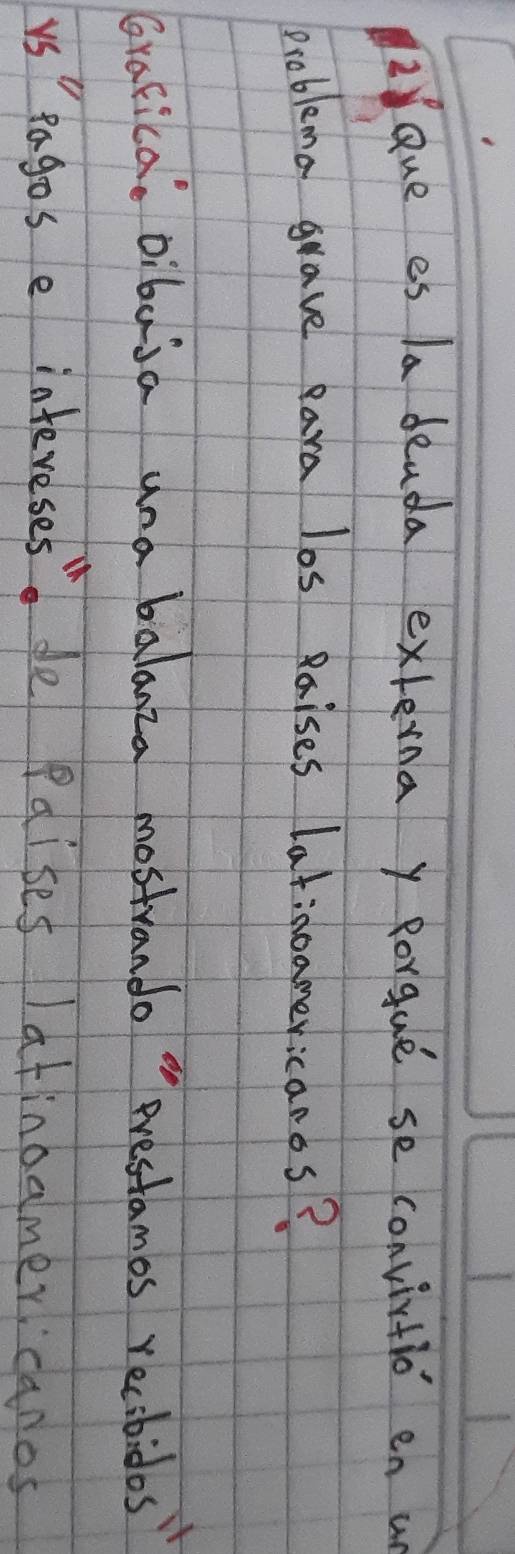 2) Que es la deuda externa y Porqué se convirtió en un
Problema grave Para los Paises latinoamericanos?
Grafica: Dibuja una balanza mostrando "Prestamos recibidos"
vs "Pagos e intereses". de Paises latinoamericanos